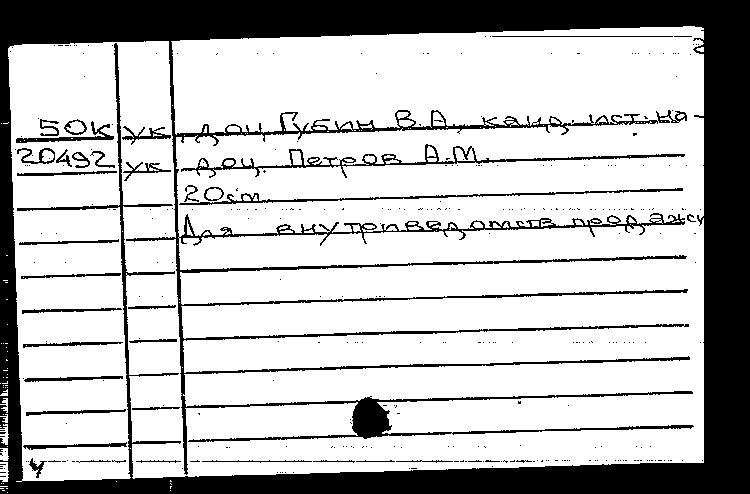 2
50к ук доц Губин В.А., канд. ист. на-
20492 ук доц. Петров А.М.
20см
Для внутриведомств продажи
У